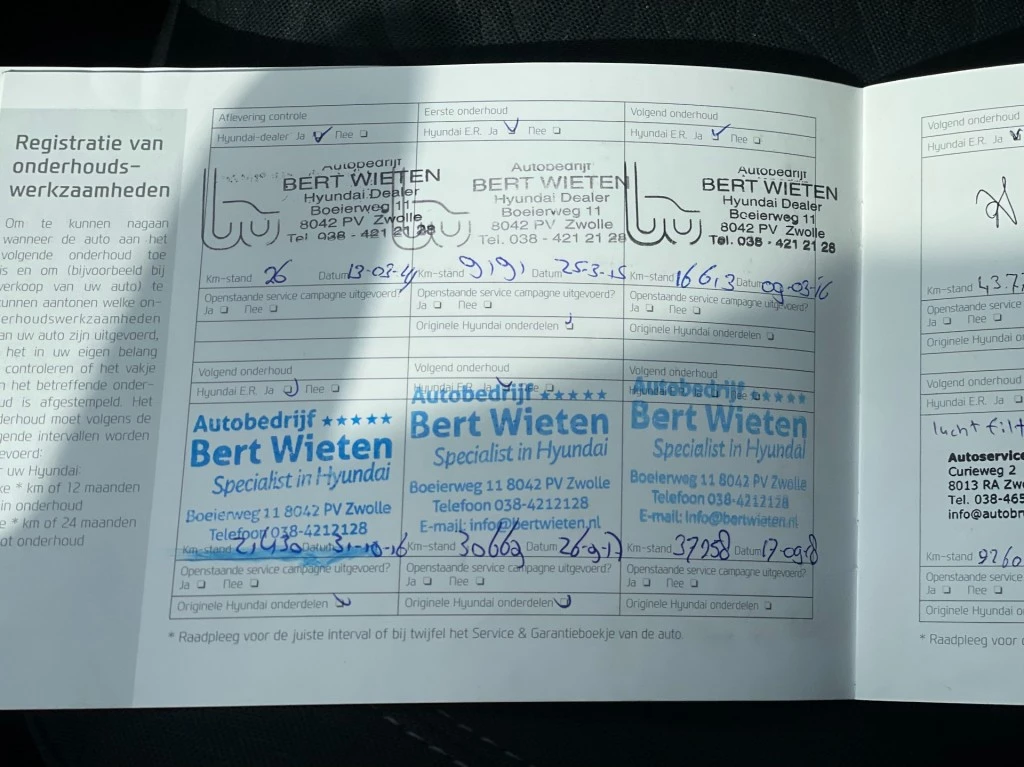 Registratie van
onderhouds-
werkzaamheden
Om te kunnen nagaan
wanneer de auto aan het
volgende onderhoud toe
is en om (bijvoorbeeld bij
verkoop van uw auto) te
kunnen aantonen welke on-
derhoudswerkzaamheden
aan uw auto zijn uitgevoerd,
het in uw eigen belang
controleren of het vakje
het betreffende onder-
is afgestempeld. Het
onderhoud moet volgens de
intervallen worden
uw Hyundai:
* km of 12 maanden
onderhoud
* km of 24 maanden
onderhoud
Aflevering controle
Hyundai-dealer Ja Nee
Autobedrijf
BERT WIETEN
Hyundai Dealer
Boeierweg 11
8042 PV Zwolle
Tel. 038 - 421 21 28
Km-stand 26 Datum 13-03-14
Openstaande service campagne uitgevoerd?
Ja Nee
Eerste onderhoud
Hyundai E.R. Ja Nee
Autobedrijf
BERT WIETEN
Hyundai Dealer
Boeierweg 11
8042 PV Zwolle
Tel. 038 - 421 21 28
Km-stand 9191 Datum 25-3-15
Openstaande service campagne uitgevoerd?
Ja Nee
Originele Hyundai onderdelen
Volgend onderhoud
Hyundai E.R. Ja Nee
Autobedrijf
BERT WIETEN
Hyundai Dealer
Boeierweg 11
8042 PV Zwolle
Tel. 038 - 421 21 28
Km-stand 16613 Datum 09-03-16
Openstaande service campagne uitgevoerd?
Ja Nee
Originele Hyundai onderdelen
Volgend onderhoud
Hyundai E.R. Ja Nee
Autobedrijf ★★★★★
Bert Wieten
Specialist in Hyundai
Boeierweg 11 8042 PV Zwolle
Telefoon 038-4212128
Km-stand 21430 Datum 31-10-16
Openstaande service campagne uitgevoerd?
Ja Nee
Originele Hyundai onderdelen
Volgend onderhoud
Hyundai E.R. Ja Nee
Autobedrijf ★★★★★
Bert Wieten
Specialist in Hyundai
Boeierweg 11 8042 PV Zwolle
Telefoon 038-4212128
E-mail: info@bertwieten.nl
Km-stand 30669 Datum 26-9-17
Openstaande service campagne uitgevoerd?
Ja Nee
Originele Hyundai onderdelen
Volgend onderhoud
Autobedrijf ★★★★★
Bert Wieten
Specialist in Hyundai
Boeierweg 11 8042 PV Zwolle
Telefoon 038-4212128
E-mail: info@bertwieten.nl
Km-stand 37958 Datum 17-09-18
Openstaande service campagne uitgevoerd?
Ja Nee
Originele Hyundai onderdelen
* Raadpleeg voor de juiste interval of bij twijfel het Service & Garantieboekje van de auto.
Volgend onderhoud
Hyundai E.R. Ja
Km-stand 43.7
Openstaande service
Ja Nee
Originele Hyundai
Volgend onderhoud
Hyundai E.R. Ja
lucht filt
Autoservice
Curieweg 2
8013 RA Zw
Tel. 038-465
info@autobr
Km-stand 9260
Openstaande service
Ja Nee
Originele Hyundai
* Raadpleeg voor